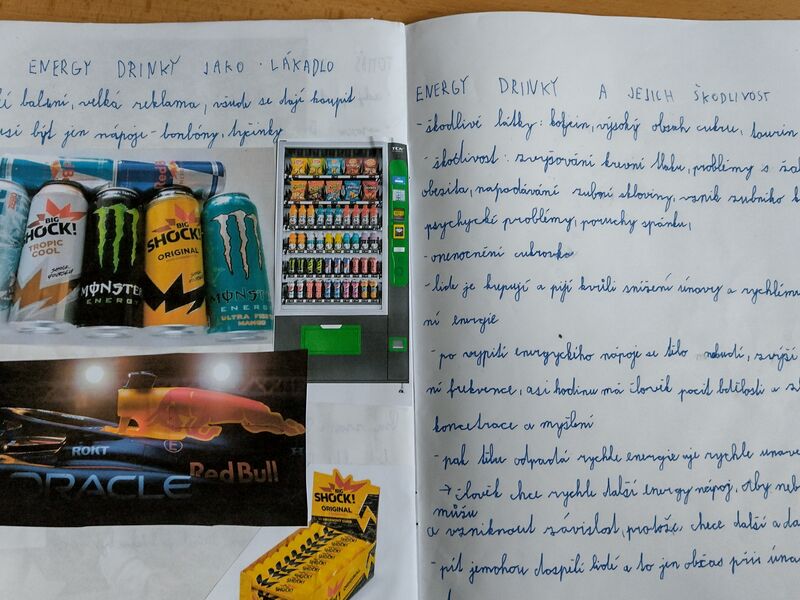 ENERGY DRINKY JAKO LÁKADLO
balení, velká reklama, všude se dají koupit
být jen nápoje - bonbóny, tyčinky
BIG
SHOCK!
TROPIC
COOL
MONSTER
ENERGY
BIG
SHOCK!
ORIGINAL
MONSTER
ENERGY
ULTRA
MANGO
ROKT
Red Bull
ORACLE
BIG
SHOCK!
ORIGINAL
ENERGY DRINKY A JEJICH ŠKODLIVOST
- škodlivé látky: kofein, výsoký obsah cukru, taurin
- škodlivost: zvyšování krevní tlaku, problémy s
obezita, napadávání zubní skloviny, vznik zubního
psychycké problémy, poruchy spánku,
- onemocnění cukrovka
- lidé je kupují a pijí kvůli snížení únavy a rychlému
ní energie
- po vypití energyckého nápoje se tělo nabudí, zvýší
ní frekvence, asi hodinu má člověk pocit bdělosti a
koncetrace a myšlení
- pak tělu odpadá rychle energie a je rychle
→ člověk chce rychle další energy nápoj, Aby
můžu
a vzniknout závislost, protože chce další a
- pít jemohou dospělí lidé a to jen občas při